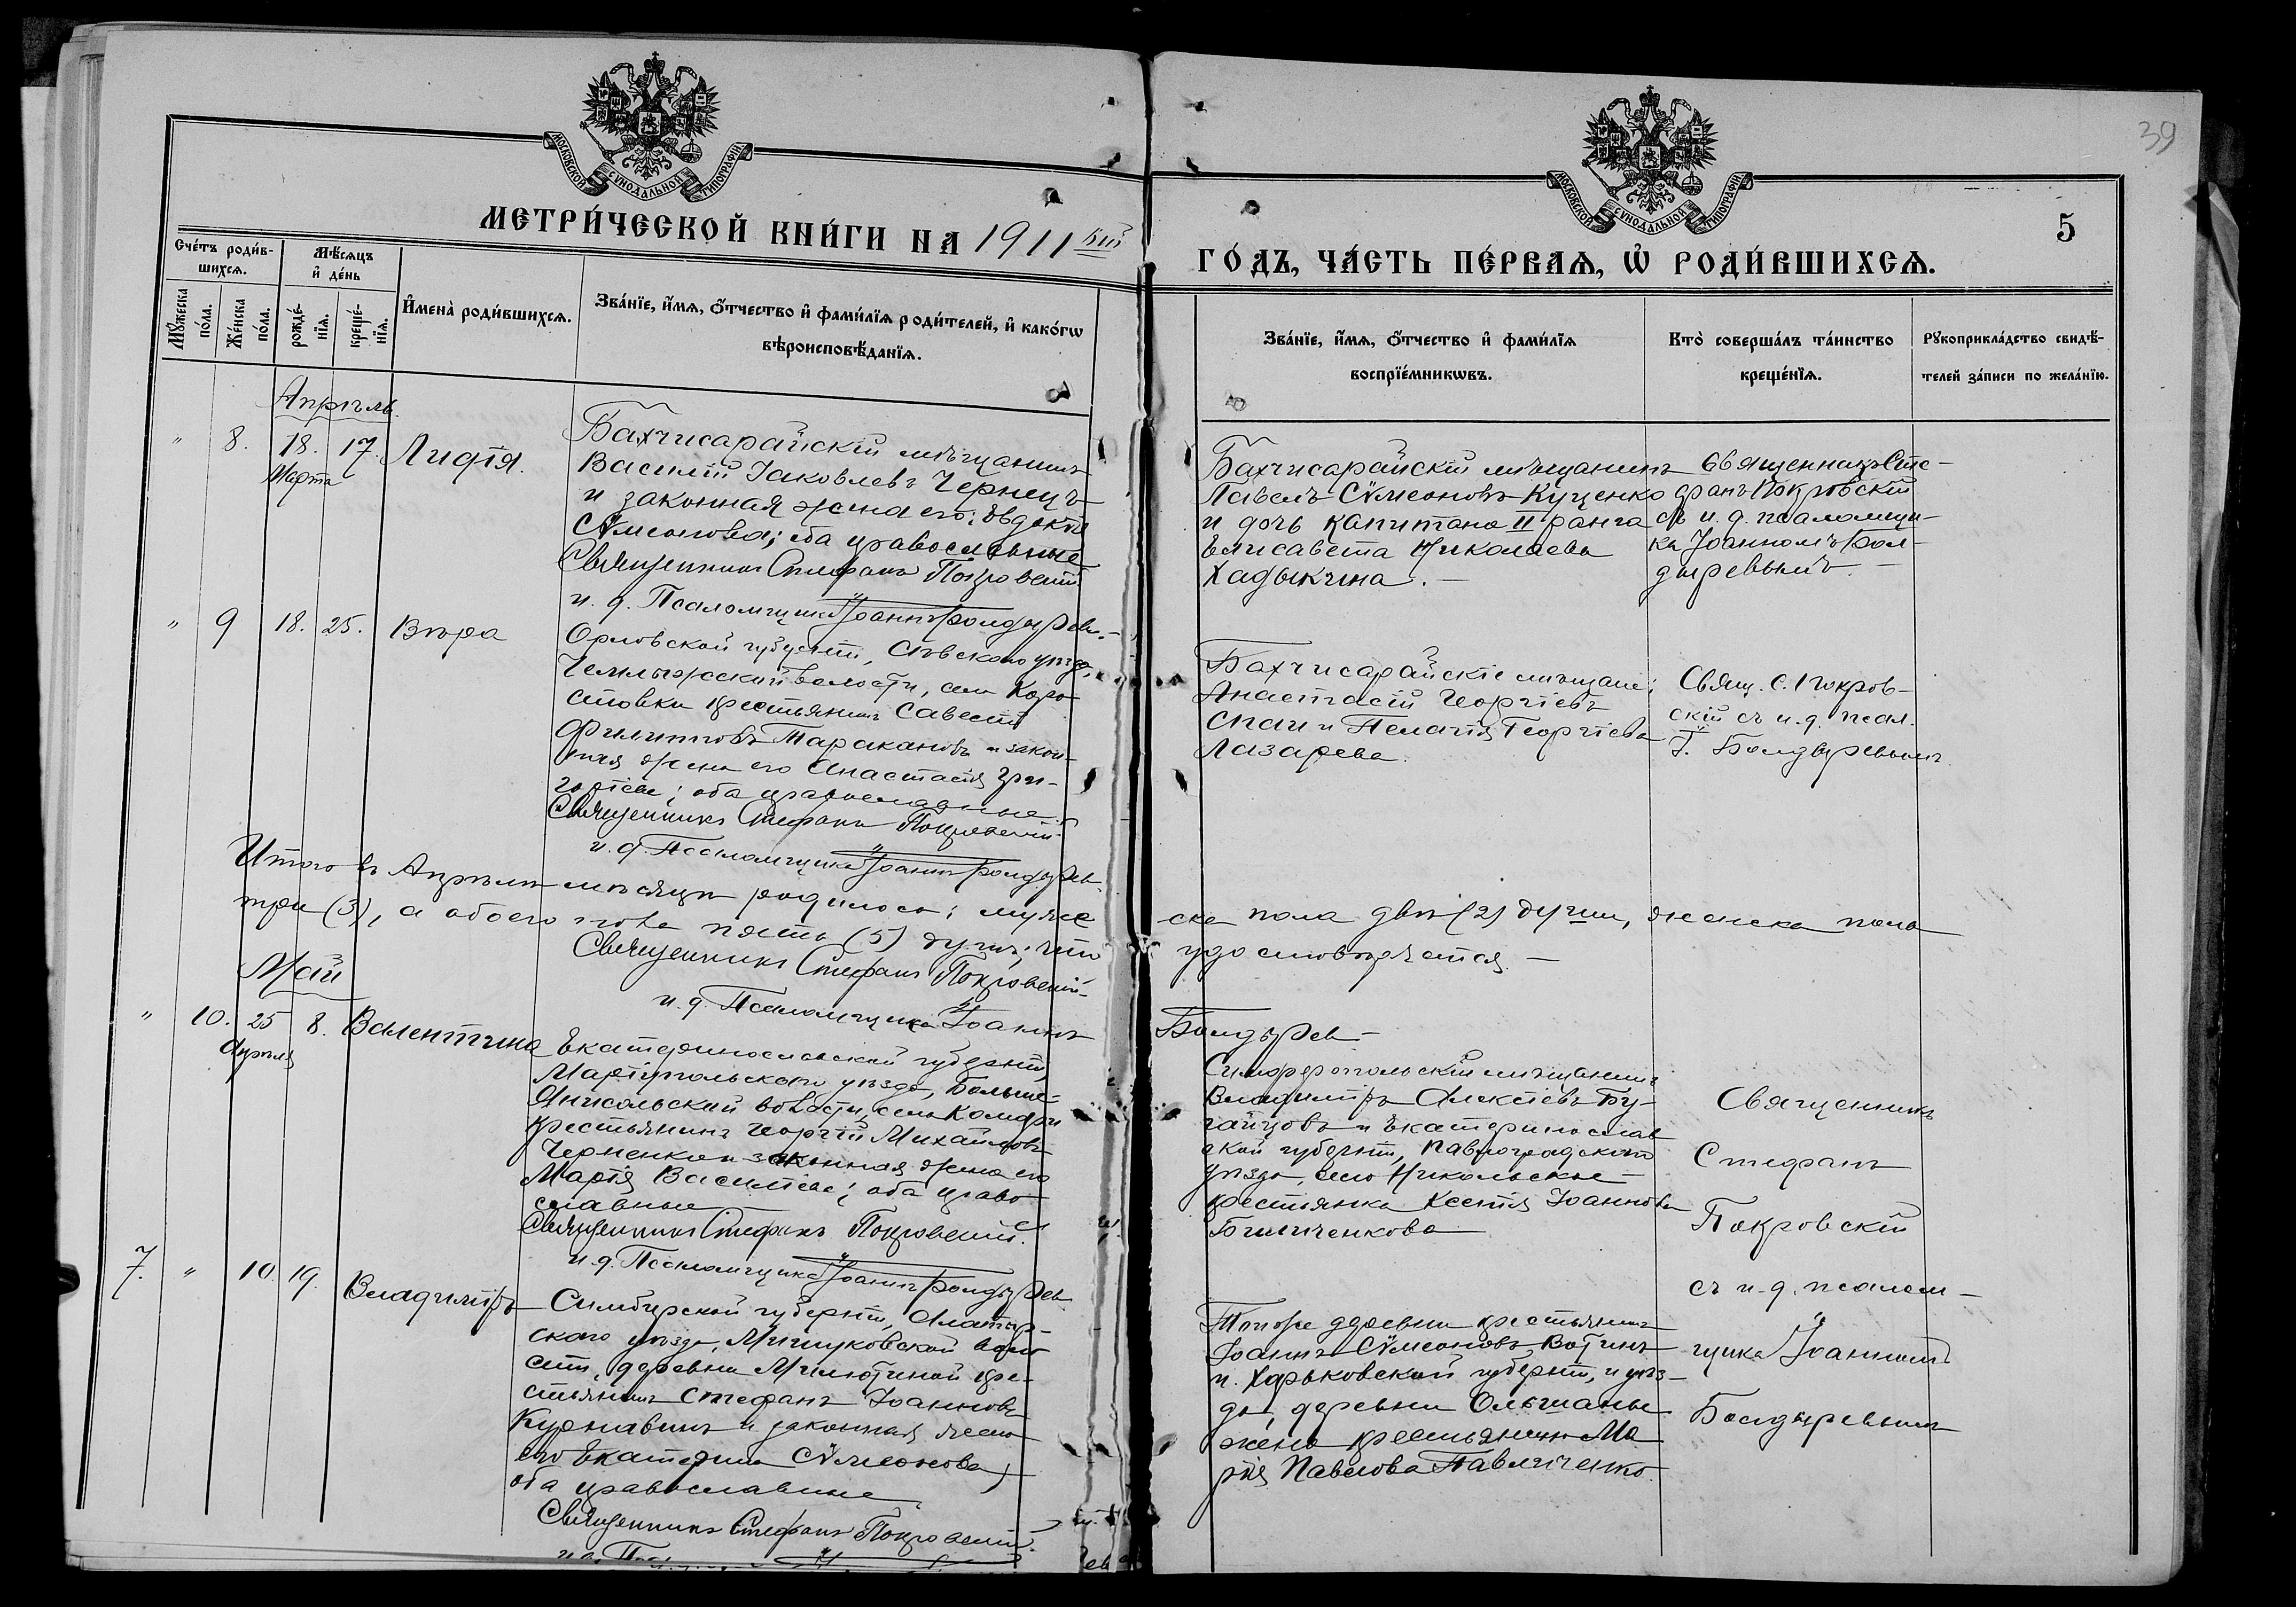 39
МОСКОВСКОЙ СУНОДАЛЬНОЙ ТИПОГРАФІИ
МОСКОВСКОЙ СУНОДАЛЬНОЙ ТИПОГРАФІИ
5
МЕТРИ́ЧЕСКОЙ КНИ́ГИ НА 1911 кій
ГО́ДЪ, ЧА́СТЬ ПЕ́РВАѦ, Ѡ҆ РОДИ́ВШИХСѦ.
Сче́тъ роди́в-
шихсѧ.
Мѣ́сѧцъ
и҆ де́нь
Мꙋ́жеска по́ла.
Же́нска по́ла.
рожде́-
нїѧ.
креще́-
нїѧ.
И҆мена̀ роди́вшихсѧ.
Зва́нїе, и҆́мѧ, ѻ҆́тчество и҆ фами́лїѧ роди́телей, и҆ како́гѡ
вѣроисповѣ́данїѧ.
Зва́нїе, и҆́мѧ, ѻ҆́тчество и҆ фами́лїѧ
воспрїе́мникѡвъ.
Кто̀ соверша́лъ та́инство
креще́нїѧ.
Рꙋкоприкла́дство свидѣ́-
телей за́писи по жела́нїю.
Апрѣль.
" 8. 18. 17. Лидія.
Марта
Бахчисарайскій мѣщанинъ
Василій Іаковлевъ Чернецъ
и законная жена его: Евдокія
Сѵмеонова; оба православные
Священникъ Стефанъ Покровскій
и. д. Псаломщика Іоаннъ Болдырев.
Бахчисарайскій мѣщанинъ
Павелъ Сѵмеоновъ Куценко
и дочь капитана II ранга
Елисавета Николаева
Хадыкина.
Священникъ Сте-
фанъ Покровскій
съ и. д. псаломщи-
ка Іоанномъ Бол-
дыревымъ.
" 9 18. 25. Вѣра
Орловской губерніи, Сѣвскаго уѣзда,
Чемлыжской волости, села Коро-
стовки крестьянинъ Савестій
Филипповъ Таракановъ и закон-
ная жена его Анастасія Гри-
горіева; оба православные.
Священникъ Стефанъ Покровскій
и. д. Псаломщика Іоаннъ Болдырев.
Бахчисарайскіе мѣщане:
Анастасій Георгіевъ
Спаи и Пелагія Георгіева
Лазарева.
Свящ. С. Покров-
скій съ и. д. псал.
І. Болдыревымъ.
Итого въ Апрѣлѣ мѣсяцѣ родилось: муже
ска пола двѣ (2) души, женска пола
три (3), а обоего пола пять (5) душъ, что
удостовѣряется.
Священникъ Стефанъ Покровскій
и. д. Псаломщика Іоаннъ
Болдырев
Май
" 10. 25 8. Валентина
Апрѣля
Екатеринославской губерніи,
Маріупольскаго уѣзда, Больше-
Янисольской волости, села Комари
крестьянинъ Георгій Михайловъ
Черненко и законная жена его
Марія Василіева; оба право
славные
Священникъ Стефанъ Покровскій.
и. д. Псаломщика Іоаннъ Болдырев
Симферопольскій мѣщанинъ
Владиміръ Алексіевъ Бу-
гайцовъ и Екатеринослав
ской губерніи, Павлоградскаго
уѣзда, село Никольское
крестьянка Ксенія Іоаннова
Биличенкова
Священникъ
Стефанъ
Покровскій
съ и. д. псалом-
щика Іоанномъ
Болдыревымъ
7. " 10. 19. Владиміръ
Симбирской губерніи, Алатыр-
скаго уѣзда, Мишуковской воло
сти, деревни Милютиной кре-
стьянинъ Стефанъ Іоанновъ
Курнавинъ и законная жена
его Екатерина Сѵмеонова,
оба православные
Священникъ Стефанъ Покровскій.
Той же деревни крестьянинъ
Іоаннъ Сѵмеоновъ Вотинъ
и. Харьковской губерніи, и уѣз-
да, деревни Ольшаны
жена крестьянина Ма
рія Павлова Павличенко.